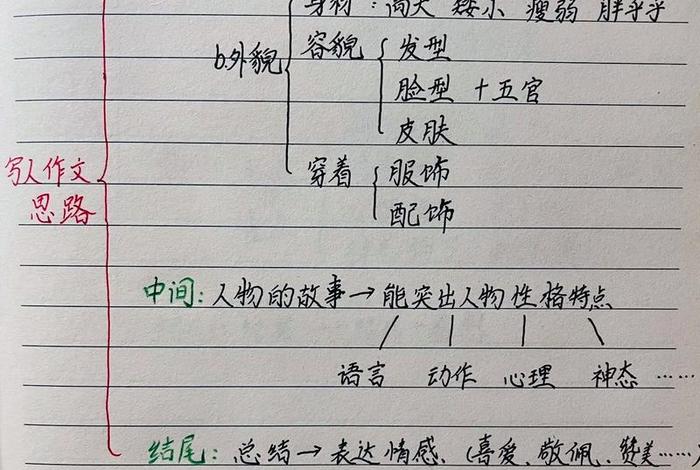 身材：高大 矮小 瘦弱 胖乎乎
b.外貌
容貌
发型
脸型 十五官
皮肤
穿着
服饰
配饰
写人作文
思路
中间：人物的故事→能突出人物性格特点
语言 动作 心理 神态 ……
结尾：总结→表达情感、(喜爱、敬佩、赞美……